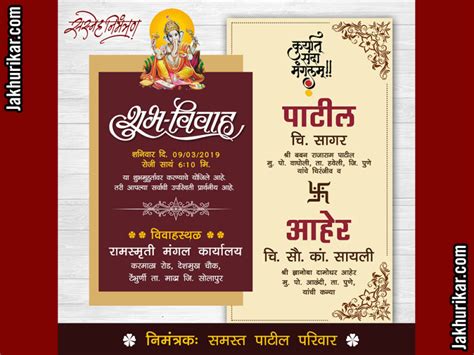 Jakhurikar.com
सस्नेह निमंत्रण
शुभ-विवाह
शनिवार दि. 09/03/2019
रोजी सायं 6:10 मि.
या शुभमुहूर्तावर करण्याचे योजिले आहे.
तरी आपल्या सर्वांची उपस्थिती प्रार्थनीय आहे.
विवाहस्थळ
रामस्मृती मंगल कार्यालय
करमाळा रोड, देशमुख चौक,
टेंभुर्णी ता. माढा जि. सोलापुर
कुर्यात
सदा
मंगलम्!!
पाटील
चि. सागर
श्री बबन राजाराम पाटील
मु. पो. वाघोली, ता. हवेली, जि. पुणे
यांचे चिरंजीव व
आहेर
चि. सौ. कां. सायली
श्री ज्ञानोबा दामोधर आहेर
मु. पो. आळंदी, ता. पुणे,
यांची कन्या
निमंत्रकः समस्त पाटील परिवार
Jakhurikar.com